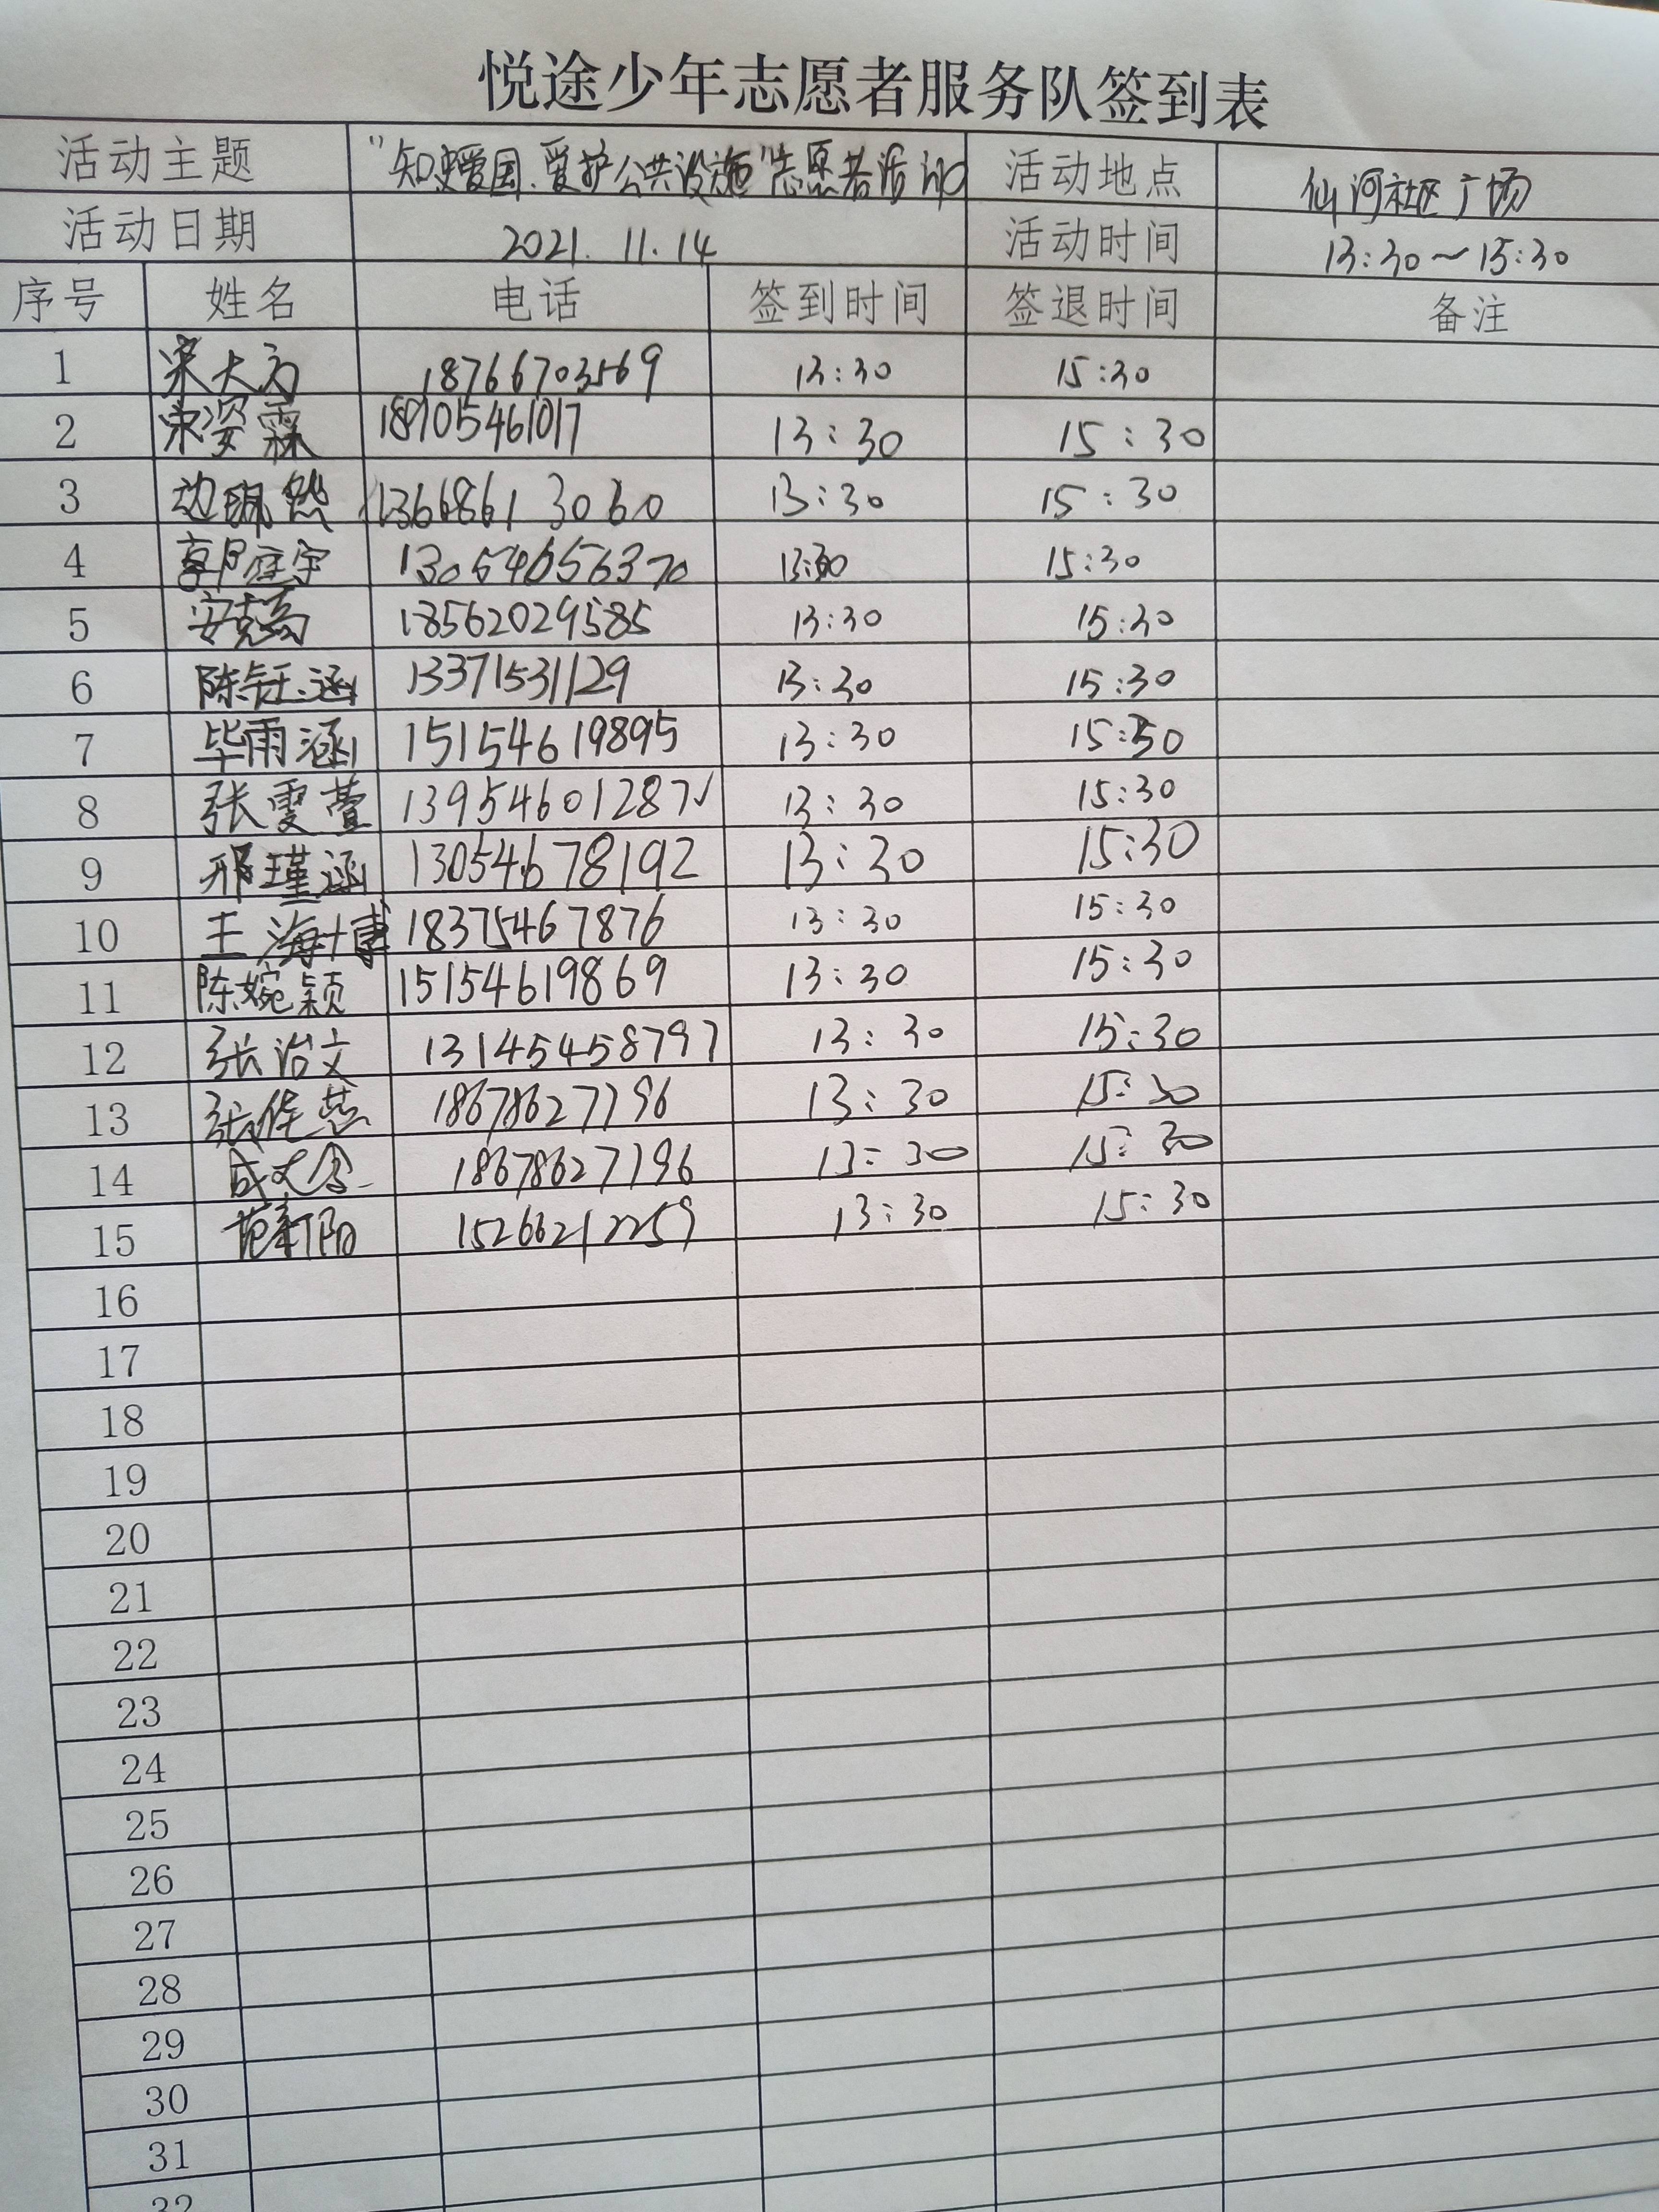 悦途少年志愿者服务队签到表
活动主题 "知史爱国、爱护公共设施"志愿者活动 活动地点 仙河社区广场
活动日期 2021.11.14 活动时间 13:30~15:30
序号 姓名 电话 签到时间 签退时间 备注
1 宋大方 18766703569 13:30 15:30
2 宋姿霖 18905461017 13:30 15:30
3 边珮然 13668613060 13:30 15:30
4 郭庭宇 13054656370 13:30 15:30
5 18562029585 13:30 15:30
6 陈钰涵 13371531129 13:30 15:30
7 毕雨涵 15154619895 13:30 15:30
8 张雯萱 13954601287 13:30 15:30
9 邢瑾涵 13054678192 13:30 15:30
10 王海博 18375467876 13:30 15:30
11 陈婉颖 15154619869 13:30 15:30
12 张治文 13145458797 13:30 15:30
13 张佳慈 18678627796 13:30 15:30
14 18678627796 13:30 15:30
15 15266212259 13:30 15:30
16
17
18
19
20
21
22
23
24
25
26
27
28
29
30
31
32